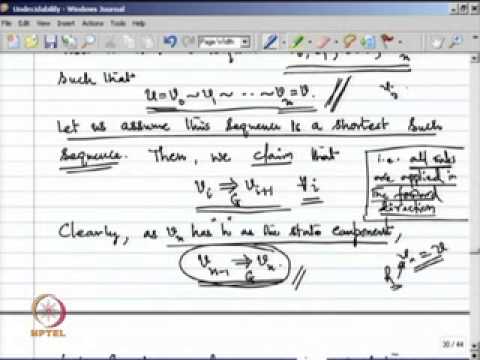 Undecidability - Windows Journal
File Edit View Insert Actions Tools Help
Page Width
Such that
U = V₀ ~ V₁ ~ ... ~ Vₙ = V.
Let us assume this sequence is a shortest such
sequence. Then, we claim that
Vᵢ ⇒ Vᵢ₊₁ ∀i
G
i.e. all rules
are applied in
the forward
direction
Clearly, as Vₙ has "h" as the state component,
Vₙ₋₁ ⇒ Vₙ.
G
Vₙ = V
NPTEL
30 / 44